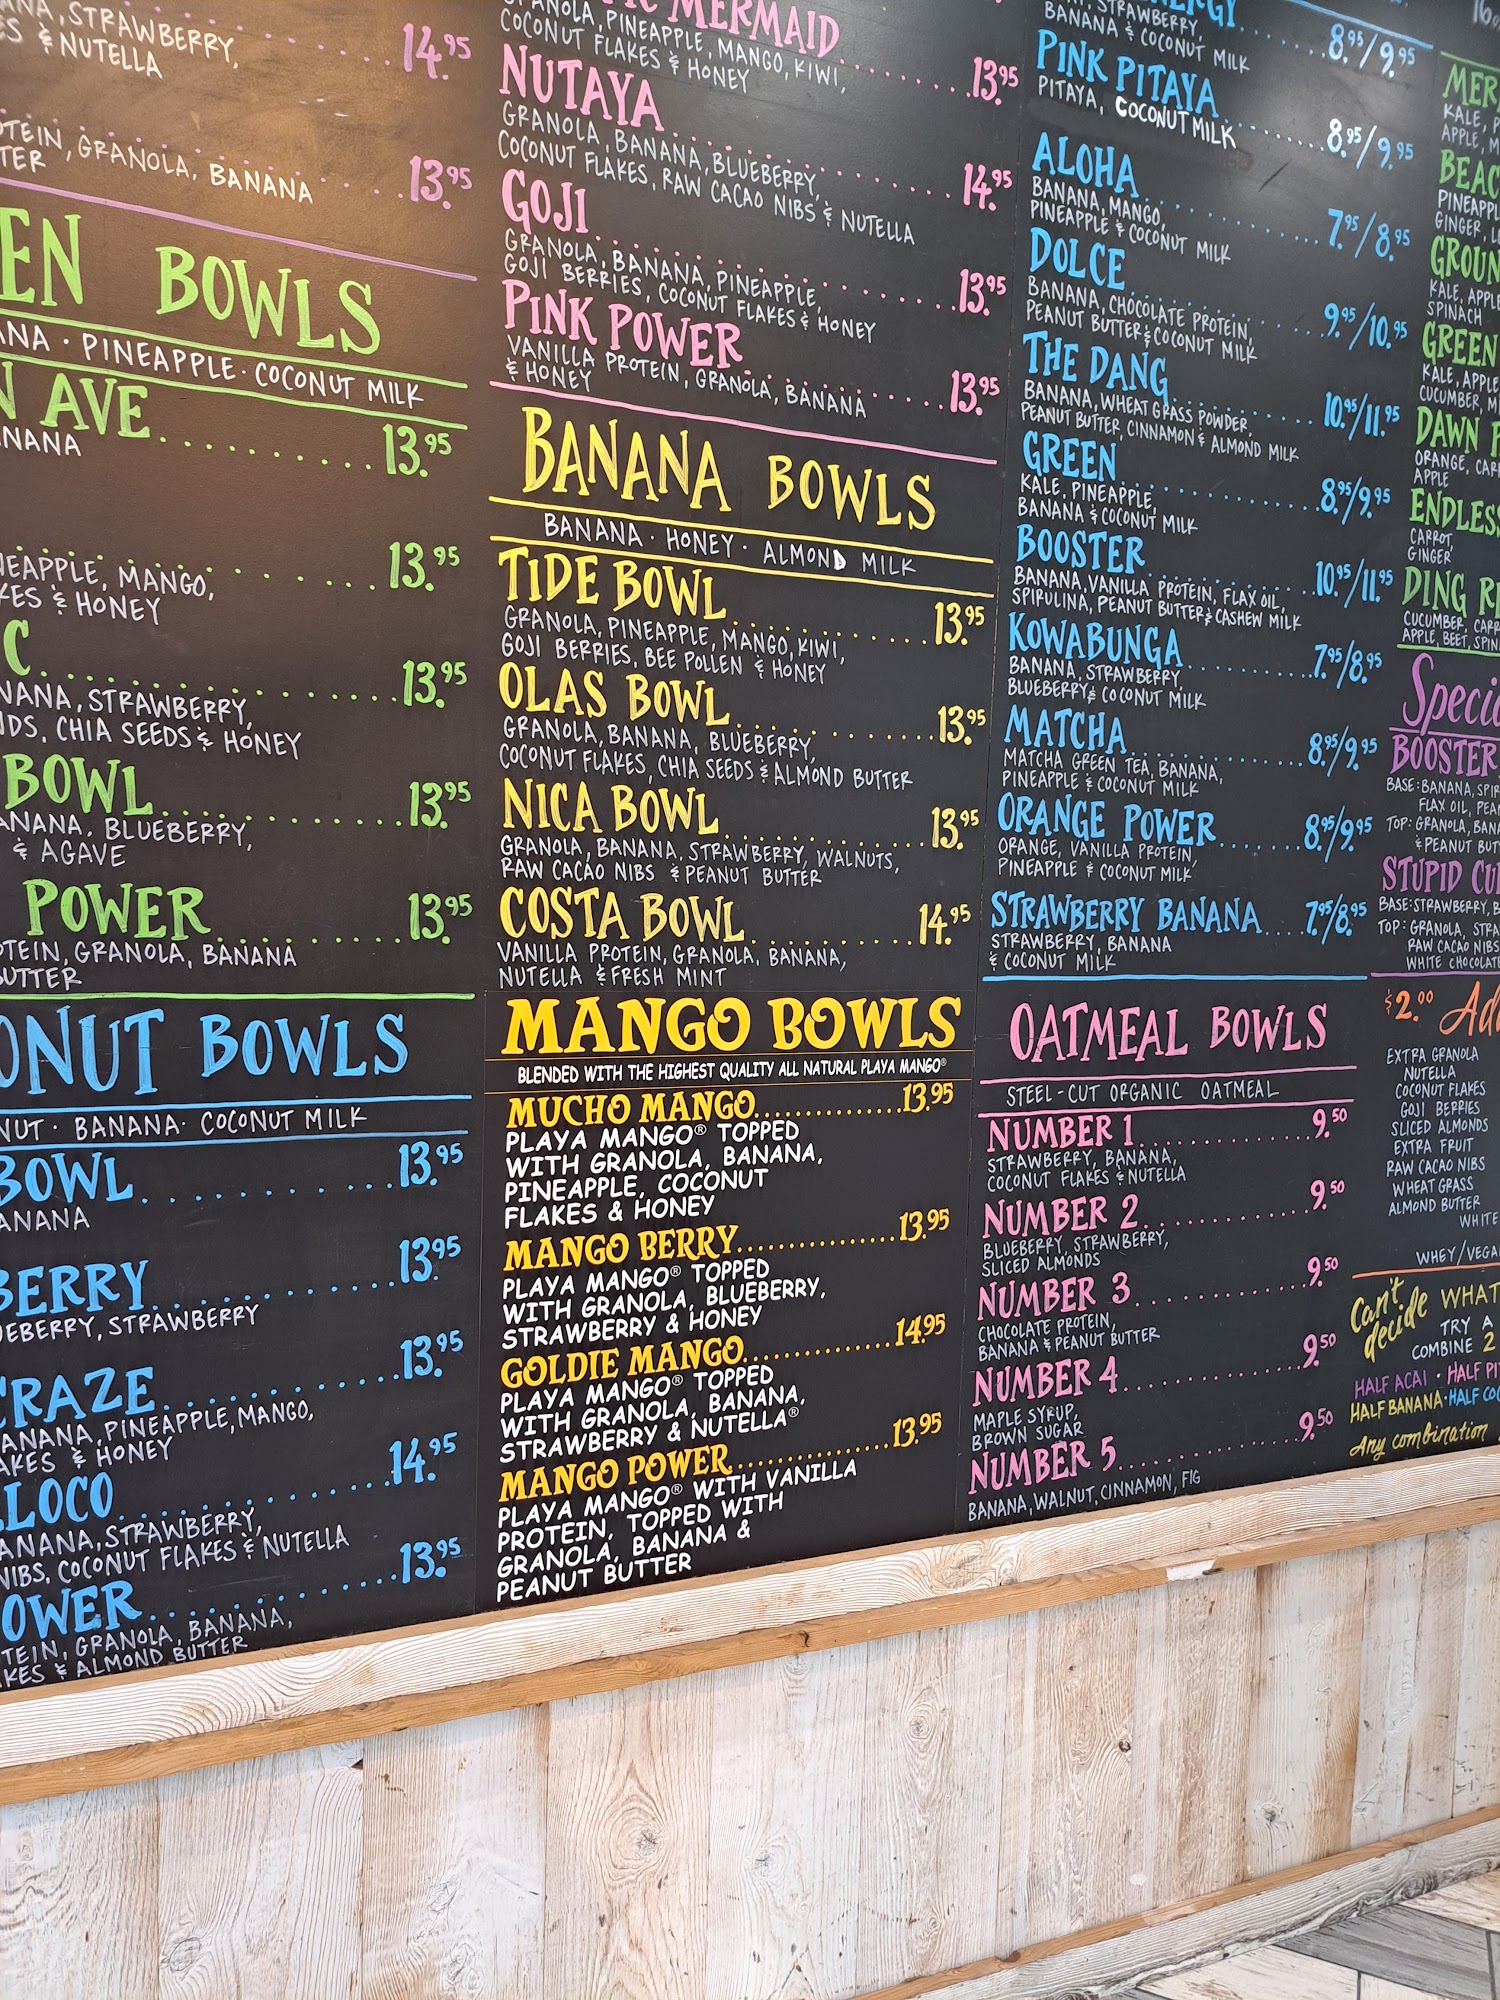 STRAWBERRY,
& NUTELLA
14.95
GRANOLA, BANANA
13.95
BOWLS
PINEAPPLE · COCONUT MILK
AVE
13.95
MANGO,
& HONEY
13.95
STRAWBERRY,
CHIA SEEDS & HONEY
13.95
BOWL
13.95
BLUEBERRY,
& AGAVE
POWER
13.95
GRANOLA, BANANA
BOWLS
BANANA · COCONUT MILK
BOWL
13.95
13.95
STRAWBERRY
13.95
PINEAPPLE, MANGO,
& HONEY
14.95
STRAWBERRY,
COCONUT FLAKES & NUTELLA
13.95
GRANOLA, BANANA,
& ALMOND BUTTER
MERMAID
PINEAPPLE, MANGO, KIWI,
COCONUT FLAKES & HONEY
13.95
NUTAYA
GRANOLA, BANANA, BLUEBERRY,
COCONUT FLAKES, RAW CACAO NIBS & NUTELLA
14.95
GOJI
GRANOLA, BANANA, PINEAPPLE,
GOJI BERRIES, COCONUT FLAKES & HONEY
13.95
PINK POWER
VANILLA PROTEIN, GRANOLA, BANANA
& HONEY
13.95
BANANA BOWLS
BANANA · HONEY · ALMOND MILK
TIDE BOWL 13.95
GRANOLA, PINEAPPLE, MANGO, KIWI,
GOJI BERRIES, BEE POLLEN & HONEY
OLAS BOWL 13.95
GRANOLA, BANANA, BLUEBERRY,
COCONUT FLAKES, CHIA SEEDS & ALMOND BUTTER
NICA BOWL 13.95
GRANOLA, BANANA, STRAWBERRY, WALNUTS,
RAW CACAO NIBS & PEANUT BUTTER
COSTA BOWL 14.95
VANILLA PROTEIN, GRANOLA, BANANA,
NUTELLA & FRESH MINT
MANGO BOWLS
BLENDED WITH THE HIGHEST QUALITY ALL NATURAL PLAYA MANGO®
MUCHO MANGO 13.95
PLAYA MANGO® TOPPED
WITH GRANOLA, BANANA,
PINEAPPLE, COCONUT
FLAKES & HONEY
MANGO BERRY 13.95
PLAYA MANGO® TOPPED
WITH GRANOLA, BLUEBERRY,
STRAWBERRY & HONEY
GOLDIE MANGO 14.95
PLAYA MANGO® TOPPED
WITH GRANOLA, BANANA,
STRAWBERRY & NUTELLA®
MANGO POWER 13.95
PLAYA MANGO® WITH VANILLA
PROTEIN, TOPPED WITH
GRANOLA, BANANA &
PEANUT BUTTER
STRAWBERRY,
BANANA & COCONUT MILK
8.95/9.95
PINK PITAYA
PITAYA, COCONUT MILK
8.95/9.95
ALOHA
BANANA, MANGO,
PINEAPPLE & COCONUT MILK
7.95/8.95
DOLCE
BANANA, CHOCOLATE PROTEIN,
PEANUT BUTTER & COCONUT MILK
9.95/10.95
THE DANG
BANANA, WHEAT GRASS POWDER,
PEANUT BUTTER, CINNAMON & ALMOND MILK
10.95/11.95
GREEN
KALE, PINEAPPLE,
BANANA & COCONUT MILK
8.95/9.95
BOOSTER
BANANA, VANILLA PROTEIN, FLAX OIL,
SPIRULINA, PEANUT BUTTER & CASHEW MILK
10.95/11.95
KOWABUNGA 7.95/8.95
BANANA, STRAWBERRY,
BLUEBERRY & COCONUT MILK
MATCHA 8.95/9.95
MATCHA GREEN TEA, BANANA,
PINEAPPLE & COCONUT MILK
ORANGE POWER 8.95/9.95
ORANGE, VANILLA PROTEIN,
PINEAPPLE & COCONUT MILK
STRAWBERRY BANANA 7.95/8.95
STRAWBERRY, BANANA
& COCONUT MILK
OATMEAL BOWLS
STEEL-CUT ORGANIC OATMEAL
NUMBER 1 9.50
STRAWBERRY, BANANA,
COCONUT FLAKES & NUTELLA
NUMBER 2 9.50
BLUEBERRY, STRAWBERRY,
SLICED ALMONDS
NUMBER 3 9.50
CHOCOLATE PROTEIN,
BANANA & PEANUT BUTTER
NUMBER 4 9.50
MAPLE SYRUP,
BROWN SUGAR
NUMBER 5 9.50
BANANA, WALNUT, CINNAMON, FIG
KALE,
APPLE,
GINGER,
KALE, APPLE
SPINACH
GREEN
KALE, APPLE
CUCUMBER,
DAWN
ORANGE,
APPLE
CARROT,
GINGER
DING
CUCUMBER,
APPLE, BEET,
BOOSTER
BASE: BANANA,
FLAX OIL,
TOP: GRANOLA,
STUPID
BASE: STRAWBERRY,
TOP: GRANOLA,
RAW CACAO NIBS
WHITE CHOCOLATE
$2.00
EXTRA GRANOLA
NUTELLA
COCONUT FLAKES
GOJI BERRIES
SLICED ALMONDS
EXTRA FRUIT
RAW CACAO NIBS
WHEAT GRASS
ALMOND BUTTER
WHITE
WHEY/
Can't decide WHAT
TRY A
COMBINE 2
HALF ACAI · HALF
HALF BANANA · HALF
Any combination